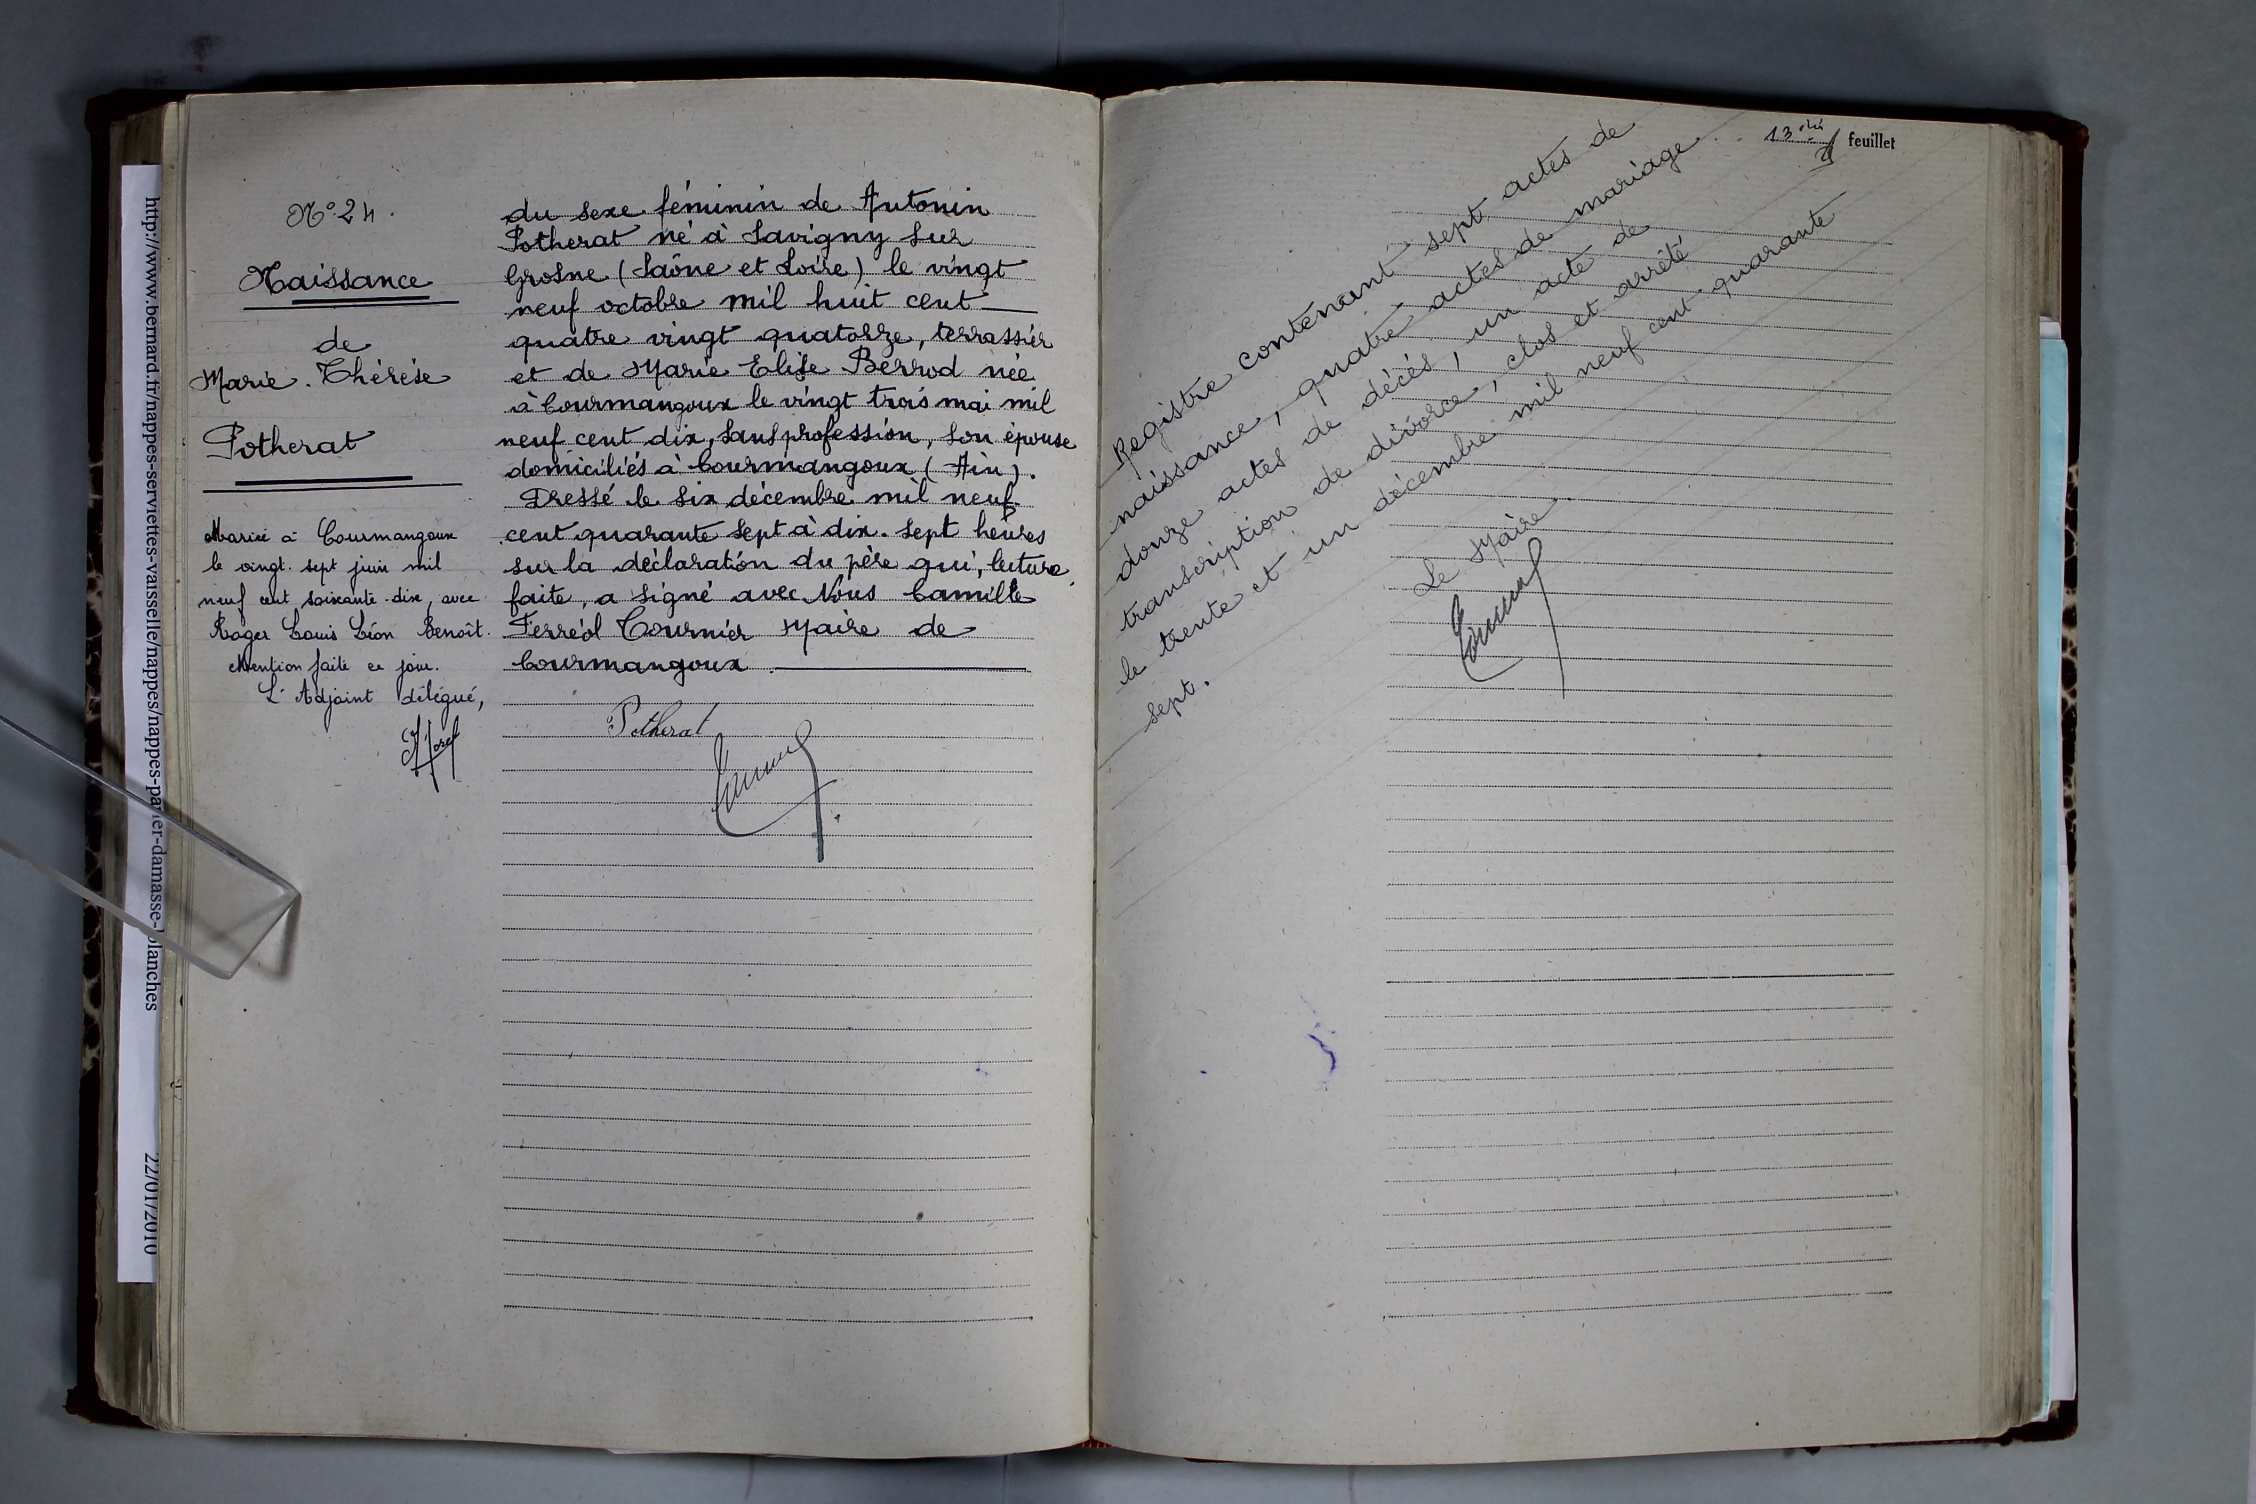 N° 24.
Naissance
de
Marie-Thérèse
Potherat
Mariée à Courmangoux
le vingt-sept juin mil
neuf cent soixante-dix, avec
Roger Louis Léon Benoît.
Mention faite ce jour.
L'Adjoint délégué,
du sexe féminin de Antonin
Potherat né à Savigny sur
Grosne (Saône et Loire) le vingt
neuf octobre mil huit cent
quatre vingt quatorze, terrassier
et de Marie Elise Berrod née
à Courmangoux le vingt trois mai mil
neuf cent dix, sans profession, son épouse
domiciliés à Courmangoux (Ain).
Dressé le six décembre mil neuf
cent quarante sept à dix-sept heures
sur la déclaration du père qui, lecture
faite, a signé avec Nous Camille
Ferréol Tournier Maire de
Courmangoux.
Potherat
13 feuillet
Registre contenant sept actes de
naissance, quatre actes de mariage
douze actes de décès, un acte de
transcription de divorce, clos et arrêté
le trente et un décembre mil neuf cent quarante
sept.
Le Maire
http://www.bernard.fr/nappes-serviettes-vaisselle/nappes/nappes-papier-damasse-blanches
22/01/2010